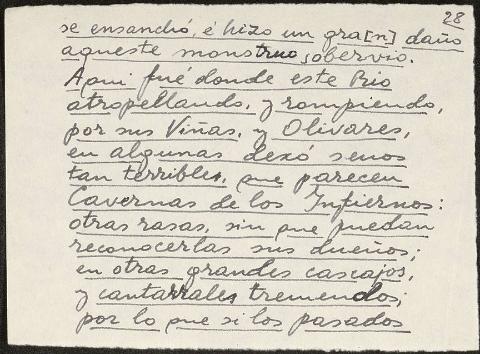 28
se ensanchó, é hizo un gra[n] daño
aqueste monstruo sobervio.
Aqui fué donde este Rio
atropellando, y rompiendo,
por sus Viñas, y Olivares,
en algunas dexó senos
tan terribles, que parecen
Cavernas de los Infiernos:
otras rasas, sin que puedan
reconocerlas sus dueños;
en otras grandes cascajos,
y cantarrales tremendos;
por lo que si los pasados